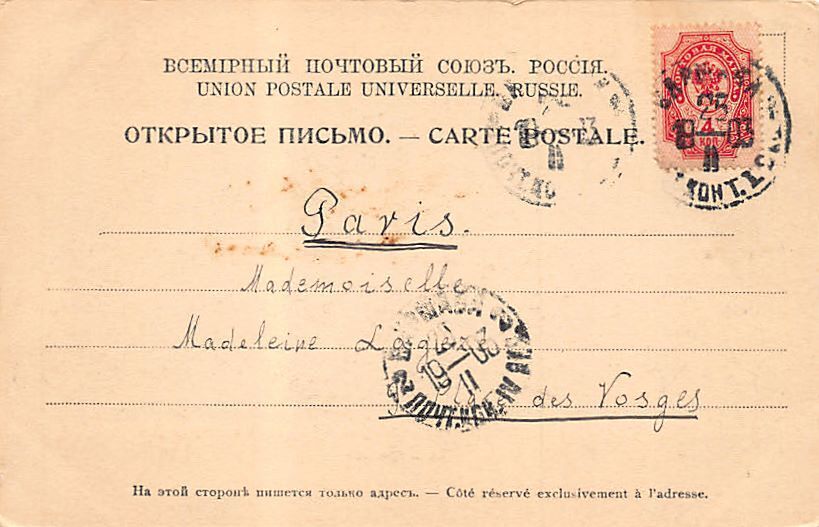 ВСЕМІРНЫЙ ПОЧТОВЫЙ СОЮЗЪ. РОССІЯ.
UNION POSTALE UNIVERSELLE. RUSSIE.
ОТКРЫТОЕ ПИСЬМО. — CARTE POSTALE.
ПОЧТОВАЯ МАРКА
4
КОП.
25
II
КОНТ.
Paris.
Mademoiselle
Madeleine
des Vosges
На этой сторонѣ пишется только адресъ. — Côté réservé exclusivement à l'adresse.